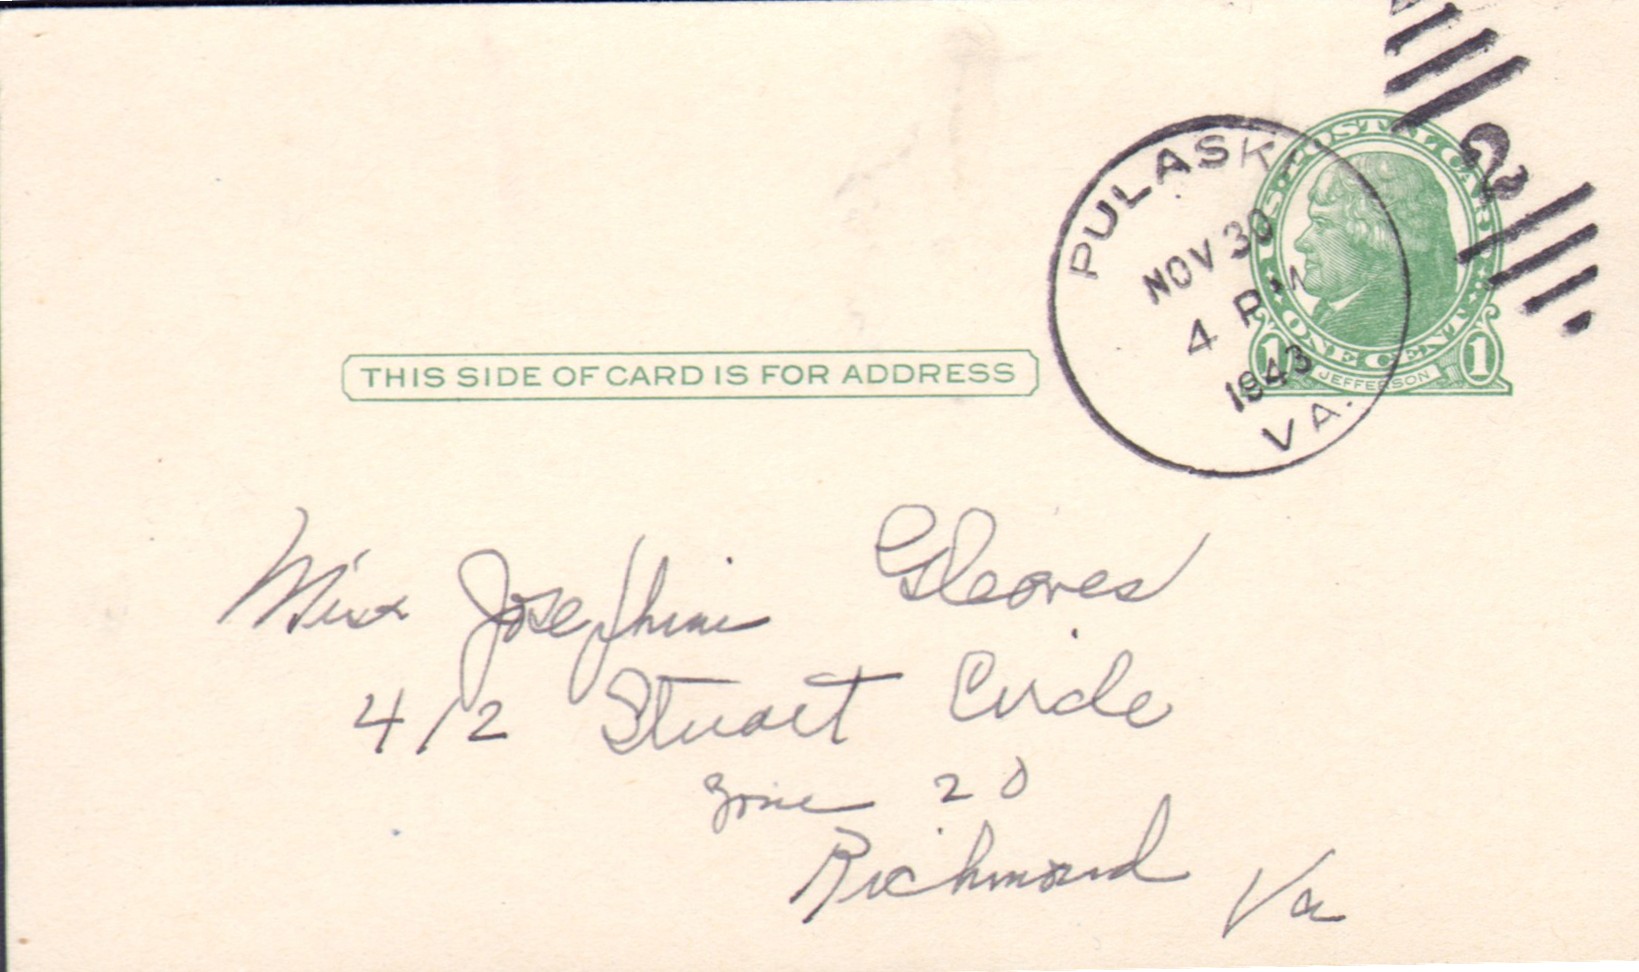 PULASKI
NOV 30
4 PM
1943
VA.
2
U.S. POSTAL CARD
ONE CENT
1 JEFFERSON 1
THIS SIDE OF CARD IS FOR ADDRESS
Miss Josephine Gleaves
412 Stuart Circle
Zone 20
Richmond Va